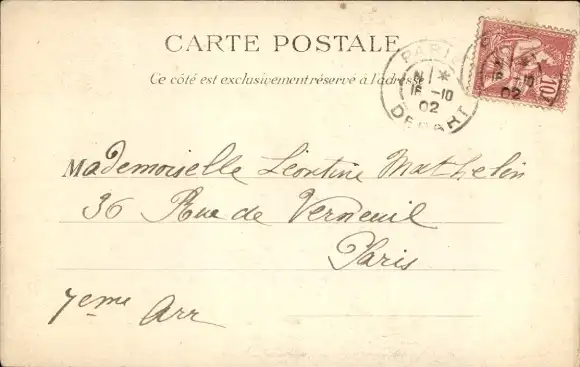 CARTE POSTALE
Ce côté est exclusivement réservé à l'adresse
PARIS
-10
02
DEPART
10
Mademoiselle Léontine Mathelin
36 Rue de Verneuil
Paris
7eme Arr